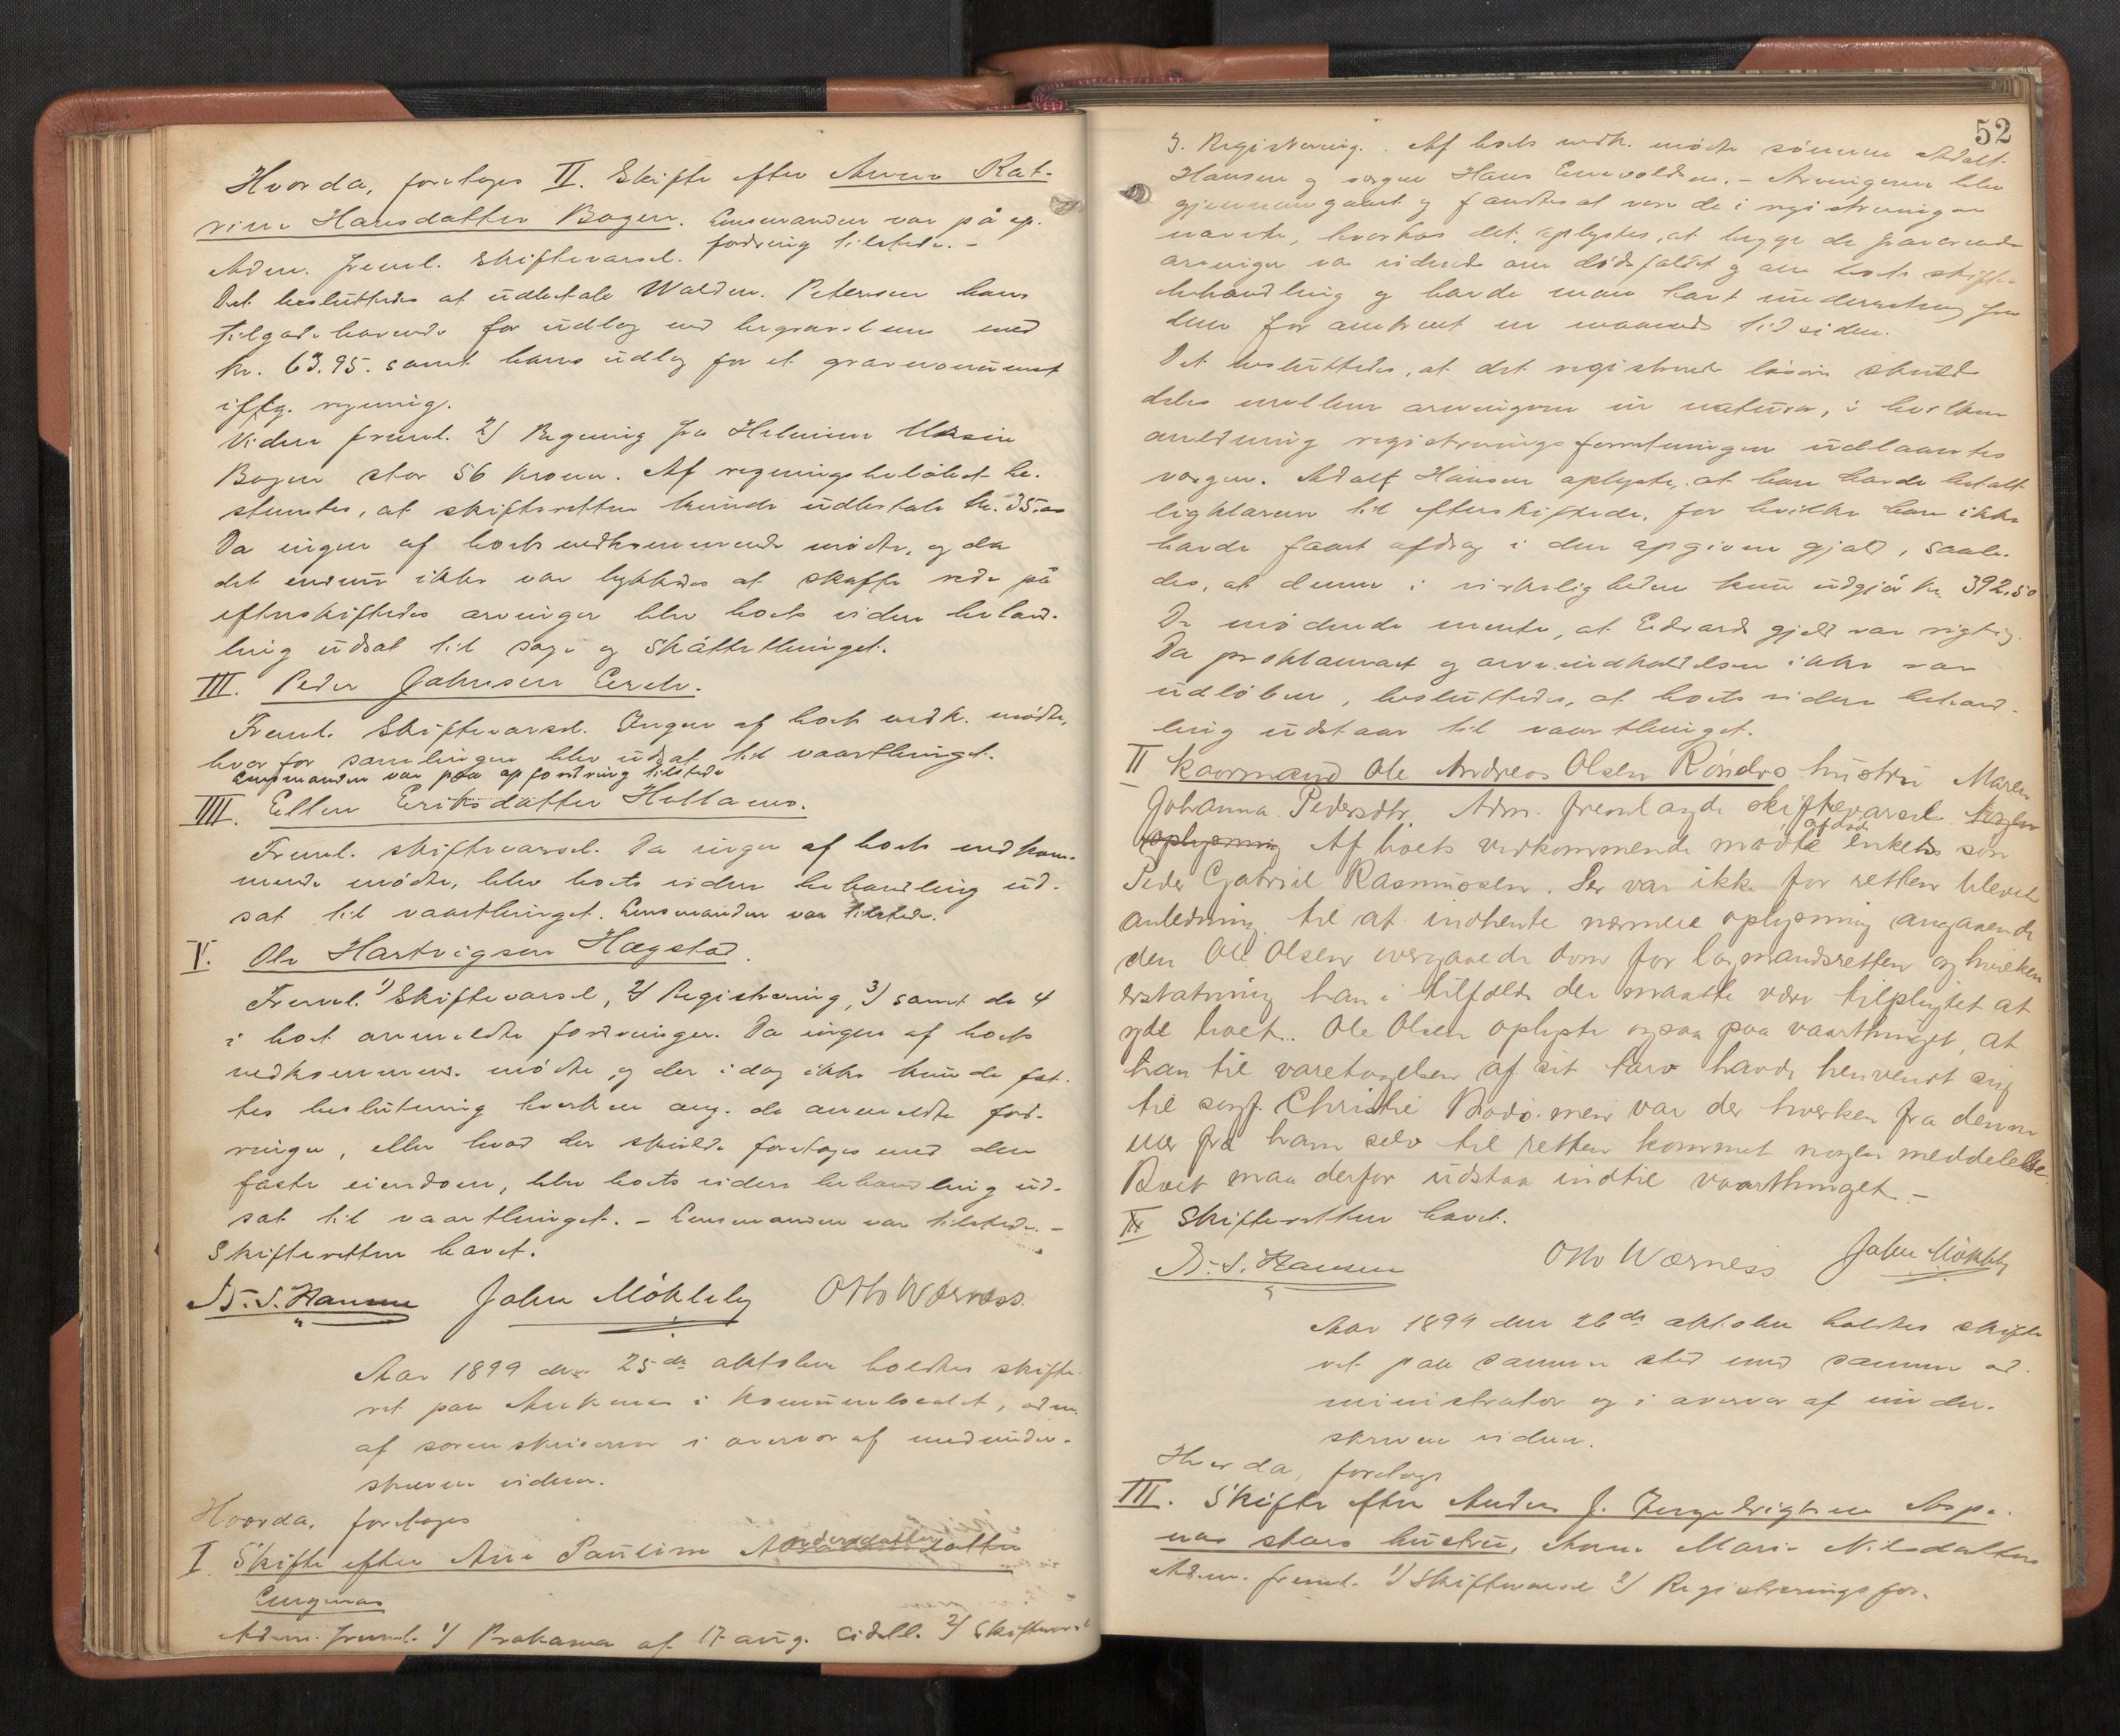 Hvorda, foretoges II. Skifte efter Anna Kat-
rine Hansdatter Bogen. Lensmanden var på op-
fordring tilstede. -
Adm. freml. Skiftevarsel.
Det besluttedes at udbetale Waldm. Petersen hans
tilgodehavende for udlæg ved begravelsen med
kr. 63.95. samt hans udlæg for et gravmonument
iflg. regning.
Videre freml. 2) Regning fra
Bogen stor 56 kroner. Af regningsbeløbet be-
stemtes, at skifteretten kunde udbetale kr. 35.00
Da ingen af boets vedkommende mødte, og da
det endnu ikke var lykkedes at skaffe rede på
efterskiftedes arvinger blev boets videre behand-
ling udsat til sage og skattethinget.
III. Peder Johnsen
Freml. Skiftevarsel. Ingen af boets vedk. mødte,
hvorfor samlingen blev udsat til vaarthinget.
Lensmanden var paa opfordring tilstede
IIII. Ellen Eriksdatter
Freml. skiftevarsel. Da ingen af boets vedkom-
mende mødte, blev boets videre behandling ud-
sat til vaarthinget. Lensmanden var tilstede.
V. Ole Hartvigsen Hægstad.
Freml. 1) Skiftevarsel, 2) Registrering, 3) samt de 4
i boet anmeldte fordringer. Da ingen af boets
vedkommend. mødte, og der idag ikke kunde fat-
tes beslutning hverken ang. de anmeldte ford-
ringer, eller hvad der skulde foretages med den
faste eiendom, blev boets videre behandling ud-
sat til vaarthinget. - Lensmanden var tilstede. -
Skifteretten hævet.
S. Hansen John Mökleby Otto Værness.
Aar 1899 den 25de oktober holdtes skifte-
ret paa i kommunelocalet, adm.
af sorenskriveren i overvær af medunder-
skrevne vidner.
Hvorda, foretoges
I. Skifte efter Ane Pauline Andersdatter datter
Adm. freml. 1) Proklama af 17. aug. sidstl. 2) Skiftevarsel
52
3. Registrering. Af boets vedk. mødte sønnen Adolf
Hansen og vergen Hans Enevoldsen. - Arvingerne blev
gjennemgaaet og fandtes at være de i registreringen
nævnte, hvorhos det oplystes, at begge de fraværende
arvinger var vidende om dødsfaldet og om boets skifte-
behandling og havde man havt underretning fra
dem for omtrent en maaneds tid siden.
Det besluttedes, at det registrerede løsøre skulde
deles mellem arvingerne in natura, i hvilken
anledning registreringsforretningen udlaantes
vergen. Adolf Hansen oplyste, at han havde betalt
ligklærerne til efterskiftede, for hvilke han ikke
havde faaet afdrag i den opgivne gjæld, saale-
des, at denne i virkeligheden kun udgjør kr. 392.50
De mødende mente, at Edvards gjæld var rigtig.
Da proklamaet og arveindkaldelsen ikke var
udløben, besluttedes, at boets videre behand-
ling udstaar til vaarthinget.
II Kaarmand Ole Andreas Olsen Röndes hustru Maren
Johanna Pedersdtr. Adm. fremlagde skiftevarsel. Nogen
oplysning Af boets vedkommende mødte afdød enkes søn
Peder Gabriel Rasmussen. Der var ikke for retten blevet
anledning til at indhente nærmere oplysning angaaende
den Ole Olsen overgaaede dom for lagmandsretten og hvilken
erstatning han i tilfælde der maatte være tilpligtet at
yde boet. Ole Olsen oplyste ogsaa paa vaarthinget, at
han til varetagelsen af sit tarv havde henvendt sig
til sagf. Christie Bodø. men var der hverken fra denne
eller fra ham selv til retten kommet nogen meddelelse.
Boet maa derfor udstaa indtil vaarthinget. -
Skifteretten hævet.
S. Hansen Otto Værness John Möklby
Aar 1899 den 26de oktober holdtes skifte
ret paa samme sted med samme ad-
ministrator og i overvær af under-
skrevne vidner.
Hvorda, foretoges
III. Skifte efter Anders J. Ingebrigtsen Aspe-
næs hustru, Anne Marie Nilsdatter
Adm. freml. 1) Skiftevarsel 2) Registreringsfor-